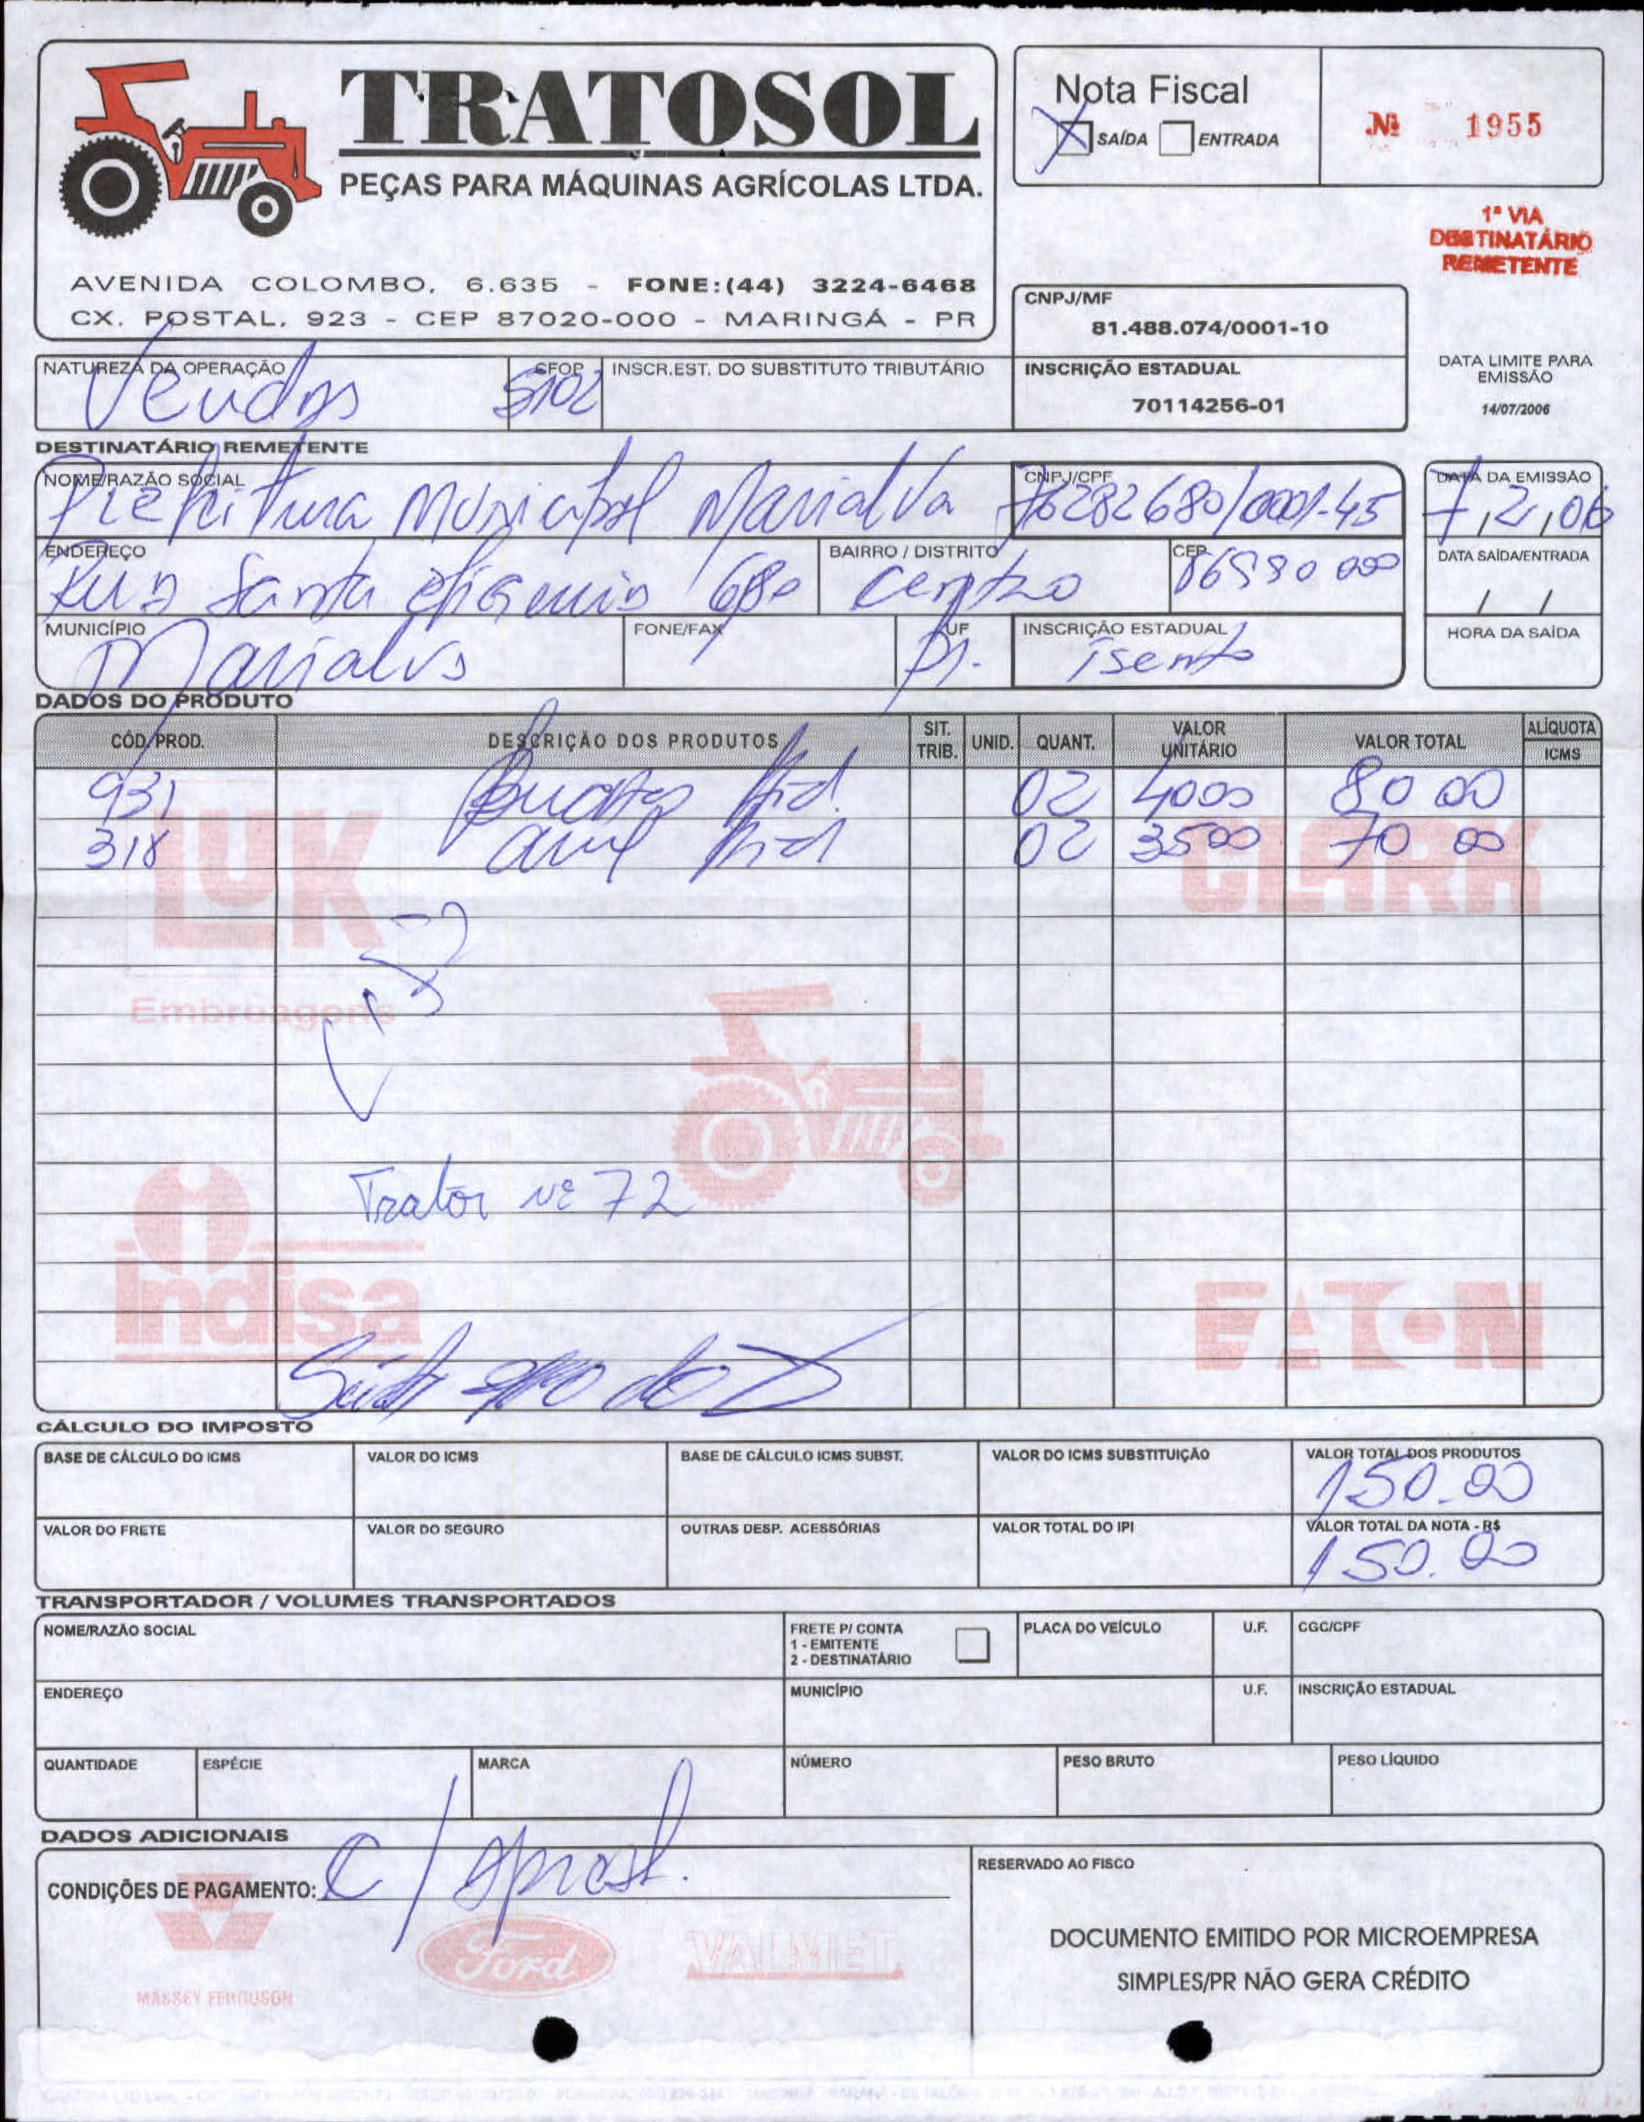 TRATOSOL
PEÇAS PARA MÁQUINAS AGRÍCOLAS LTDA.
AVENIDA COLOMBO, 6.635 - FONE:(44) 3224-6468
CX. POSTAL, 923 - CEP 87020-000 - MARINGÁ - PR
Nota Fiscal
X SAÍDA ENTRADA
Nº 1955
1ª VIA
DESTINATÁRIO
REMETENTE
CNPJ/MF
81.488.074/0001-10
INSCRIÇÃO ESTADUAL
70114256-01
DATA LIMITE PARA
EMISSÃO
14/07/2006
NATUREZA DA OPERAÇÃO CFOP INSCR.EST. DO SUBSTITUTO TRIBUTÁRIO
Vendas 5102
DESTINATÁRIO REMETENTE
NOME/RAZÃO SOCIAL CNPJ/CPF DATA DA EMISSÃO
Prefeitura Municipal Marialva 76282680/0001-45 7,2,06
ENDEREÇO BAIRRO / DISTRITO CEP DATA SAÍDA/ENTRADA
Rua Santa efigenia 680 Centro 86990 000 / /
MUNICÍPIO FONE/FAX UF INSCRIÇÃO ESTADUAL HORA DA SAÍDA
Marialva Pr. isento
DADOS DO PRODUTO
CÓD/PROD. DESCRIÇÃO DOS PRODUTOS SIT. TRIB. UNID. QUANT. VALOR UNITÁRIO VALOR TOTAL ALÍQUOTA ICMS
931 Hid. 02 4000 80 00
318 Hid 02 3500 70 00
LUK
Embreagens
CLARK
Trator Nº 72
Indisa
EATON
CÁLCULO DO IMPOSTO
BASE DE CÁLCULO DO ICMS VALOR DO ICMS BASE DE CÁLCULO ICMS SUBST. VALOR DO ICMS SUBSTITUIÇÃO VALOR TOTAL DOS PRODUTOS
150.00
VALOR DO FRETE VALOR DO SEGURO OUTRAS DESP. ACESSÓRIAS VALOR TOTAL DO IPI VALOR TOTAL DA NOTA - R$
150.00
TRANSPORTADOR / VOLUMES TRANSPORTADOS
NOME/RAZÃO SOCIAL FRETE P/ CONTA PLACA DO VEÍCULO U.F. CGC/CPF
1 - EMITENTE
2 - DESTINATÁRIO
ENDEREÇO MUNICÍPIO U.F. INSCRIÇÃO ESTADUAL
QUANTIDADE ESPÉCIE MARCA NÚMERO PESO BRUTO PESO LÍQUIDO
DADOS ADICIONAIS
CONDIÇÕES DE PAGAMENTO: C/
MASSEY FERGUSON
Ford
VALMET
RESERVADO AO FISCO
DOCUMENTO EMITIDO POR MICROEMPRESA
SIMPLES/PR NÃO GERA CRÉDITO